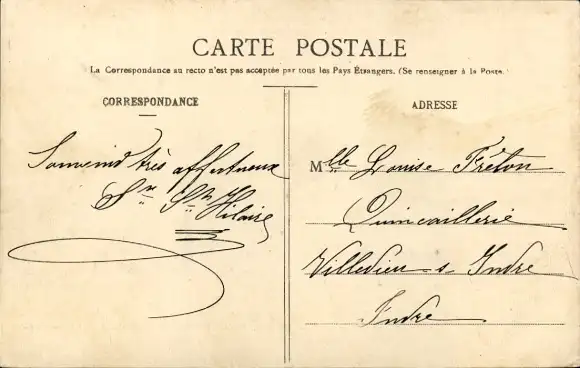 CARTE POSTALE
La Correspondance au recto n'est pas acceptée par tous les Pays Étrangers. (Se renseigner à la Poste.)
CORRESPONDANCE
Souvenir très affectueux
Sr St Hilaire
ADRESSE
Mlle Louise Fréton
Quincaillerie
Villedieu s Indre
Indre